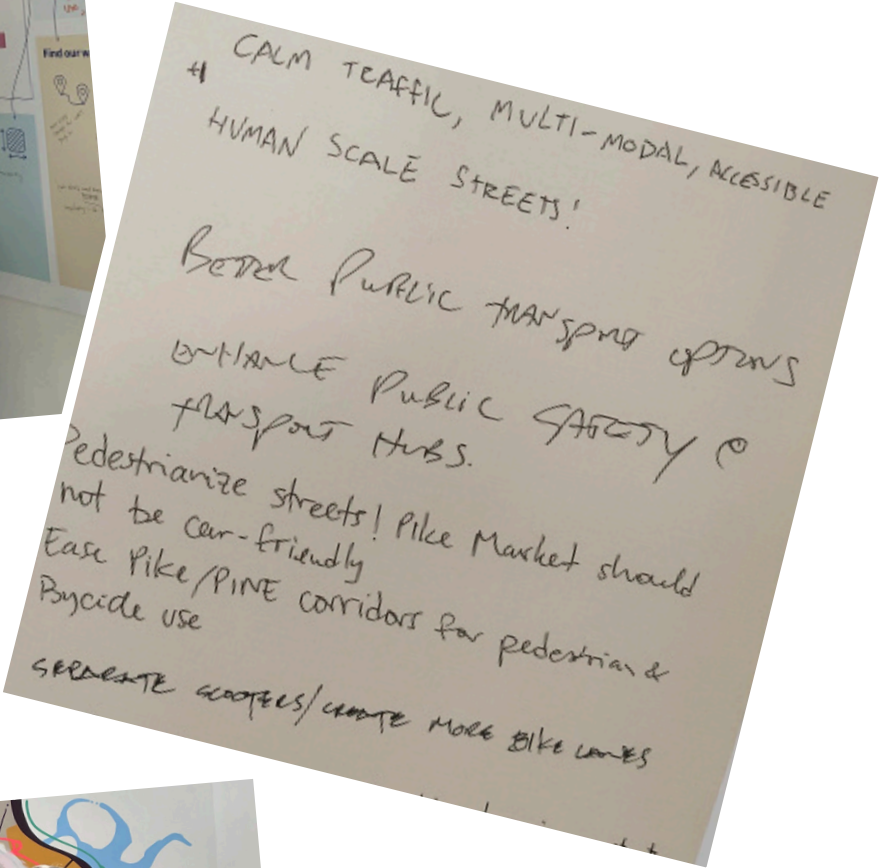 Find our w
+1
CALM TRAFFIC, MULTI-MODAL, ACCESSIBLE
HUMAN SCALE STREETS!
BETTER PUBLIC TRANSPORT OPTIONS
ENHANCE PUBLIC SAFETY @
TRANSPORT HUBS.
Pedestrianize streets! Pike Market should
not be car-friendly
Ease Pike/PINE corridors for pedestrian &
Bycicle use
SEPARATE SCOOTERS/CREATE MORE BIKE LANES